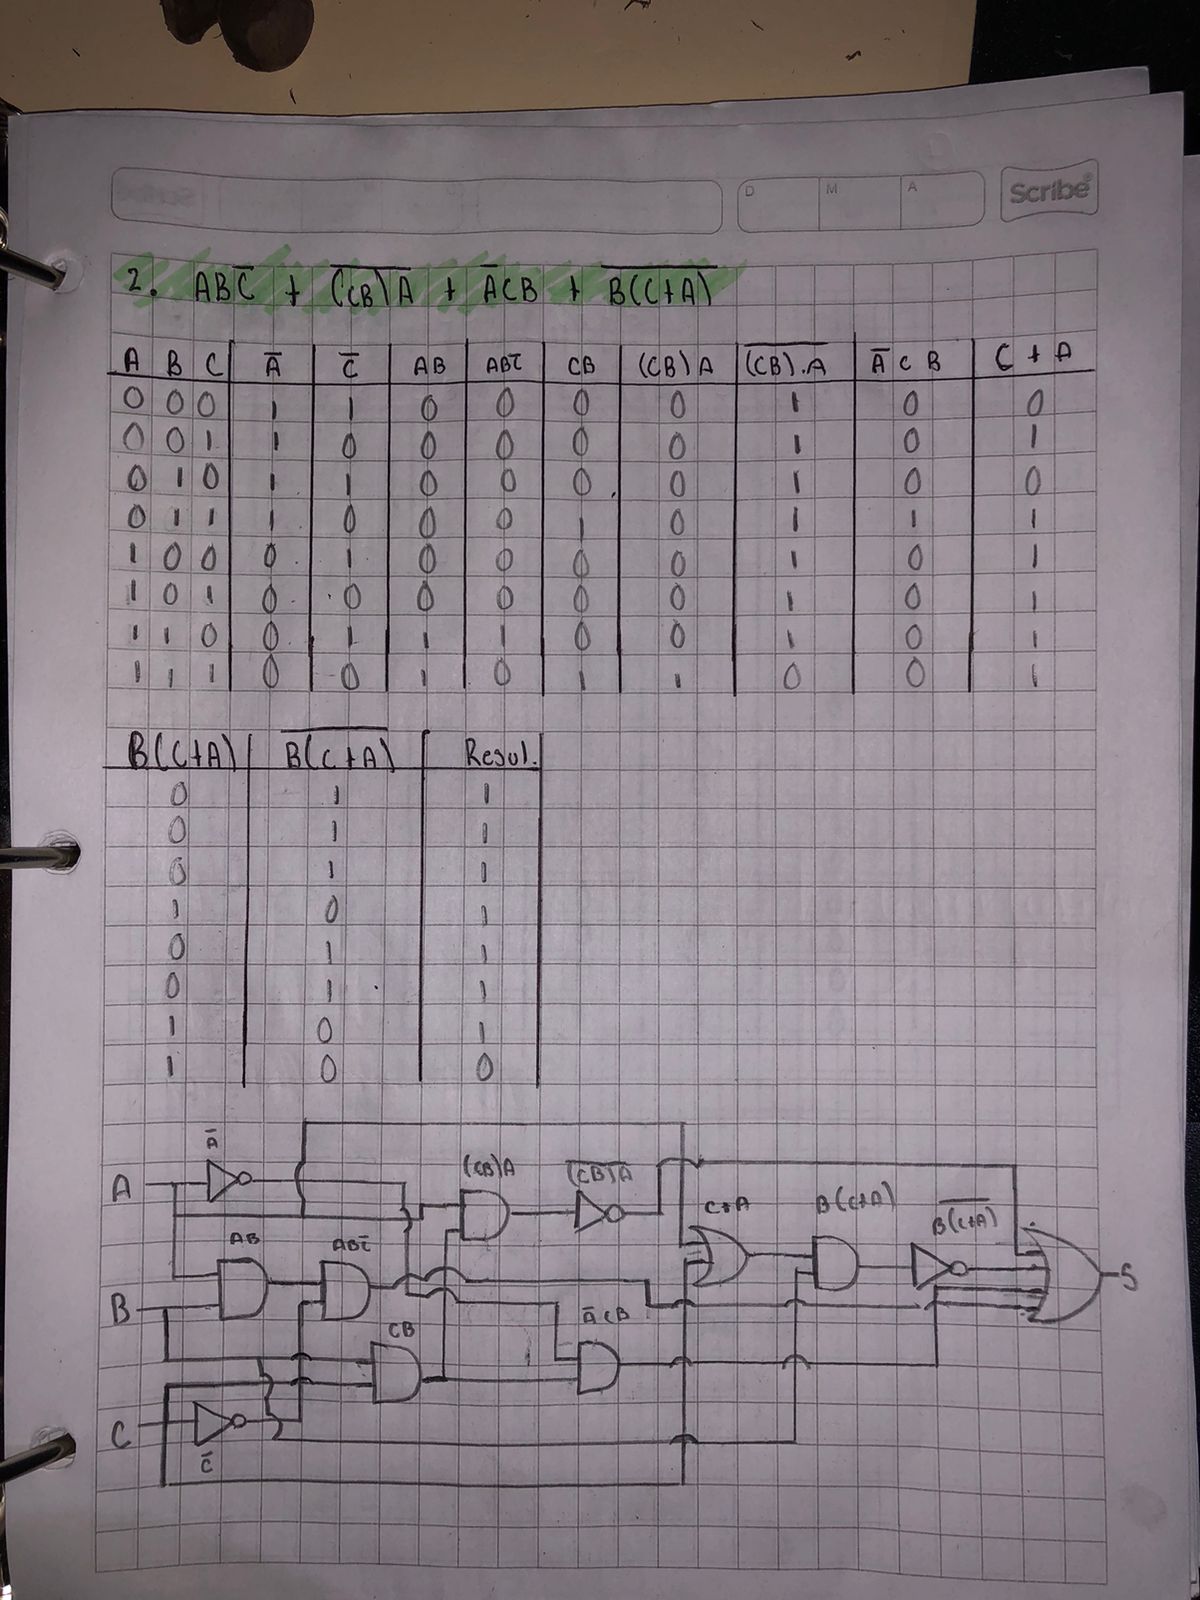 D M A Scribe®
2. ABC̅ + \overline{(CB)A} + A̅CB + \overline{B(C+A)}
A B C A̅ C̅ AB ABC̅ CB (CB)A \overline{(CB).A} A̅CB C+A
0 0 0 1 1 0 0 0 0 1 0 0
0 0 1 1 0 0 0 0 0 1 0 1
0 1 0 1 1 0 0 0 0 1 0 0
0 1 1 1 0 0 0 1 0 1 1 1
1 0 0 0 1 0 0 0 0 1 0 1
1 0 1 0 0 0 0 0 0 1 0 1
1 1 0 0 1 1 1 0 0 1 0 1
1 1 1 0 0 1 0 1 1 0 0 1
B(C+A) \overline{B(C+A)} Resul.
0 1 1
0 1 1
0 1 1
1 0 1
0 1 1
0 1 1
1 0 1
1 0 0
A̅ (CB)A \overline{(CB)A}
A C+A B(C+A) \overline{B(C+A)}
AB ABC̅
S
B A̅CB
CB
C
C̅